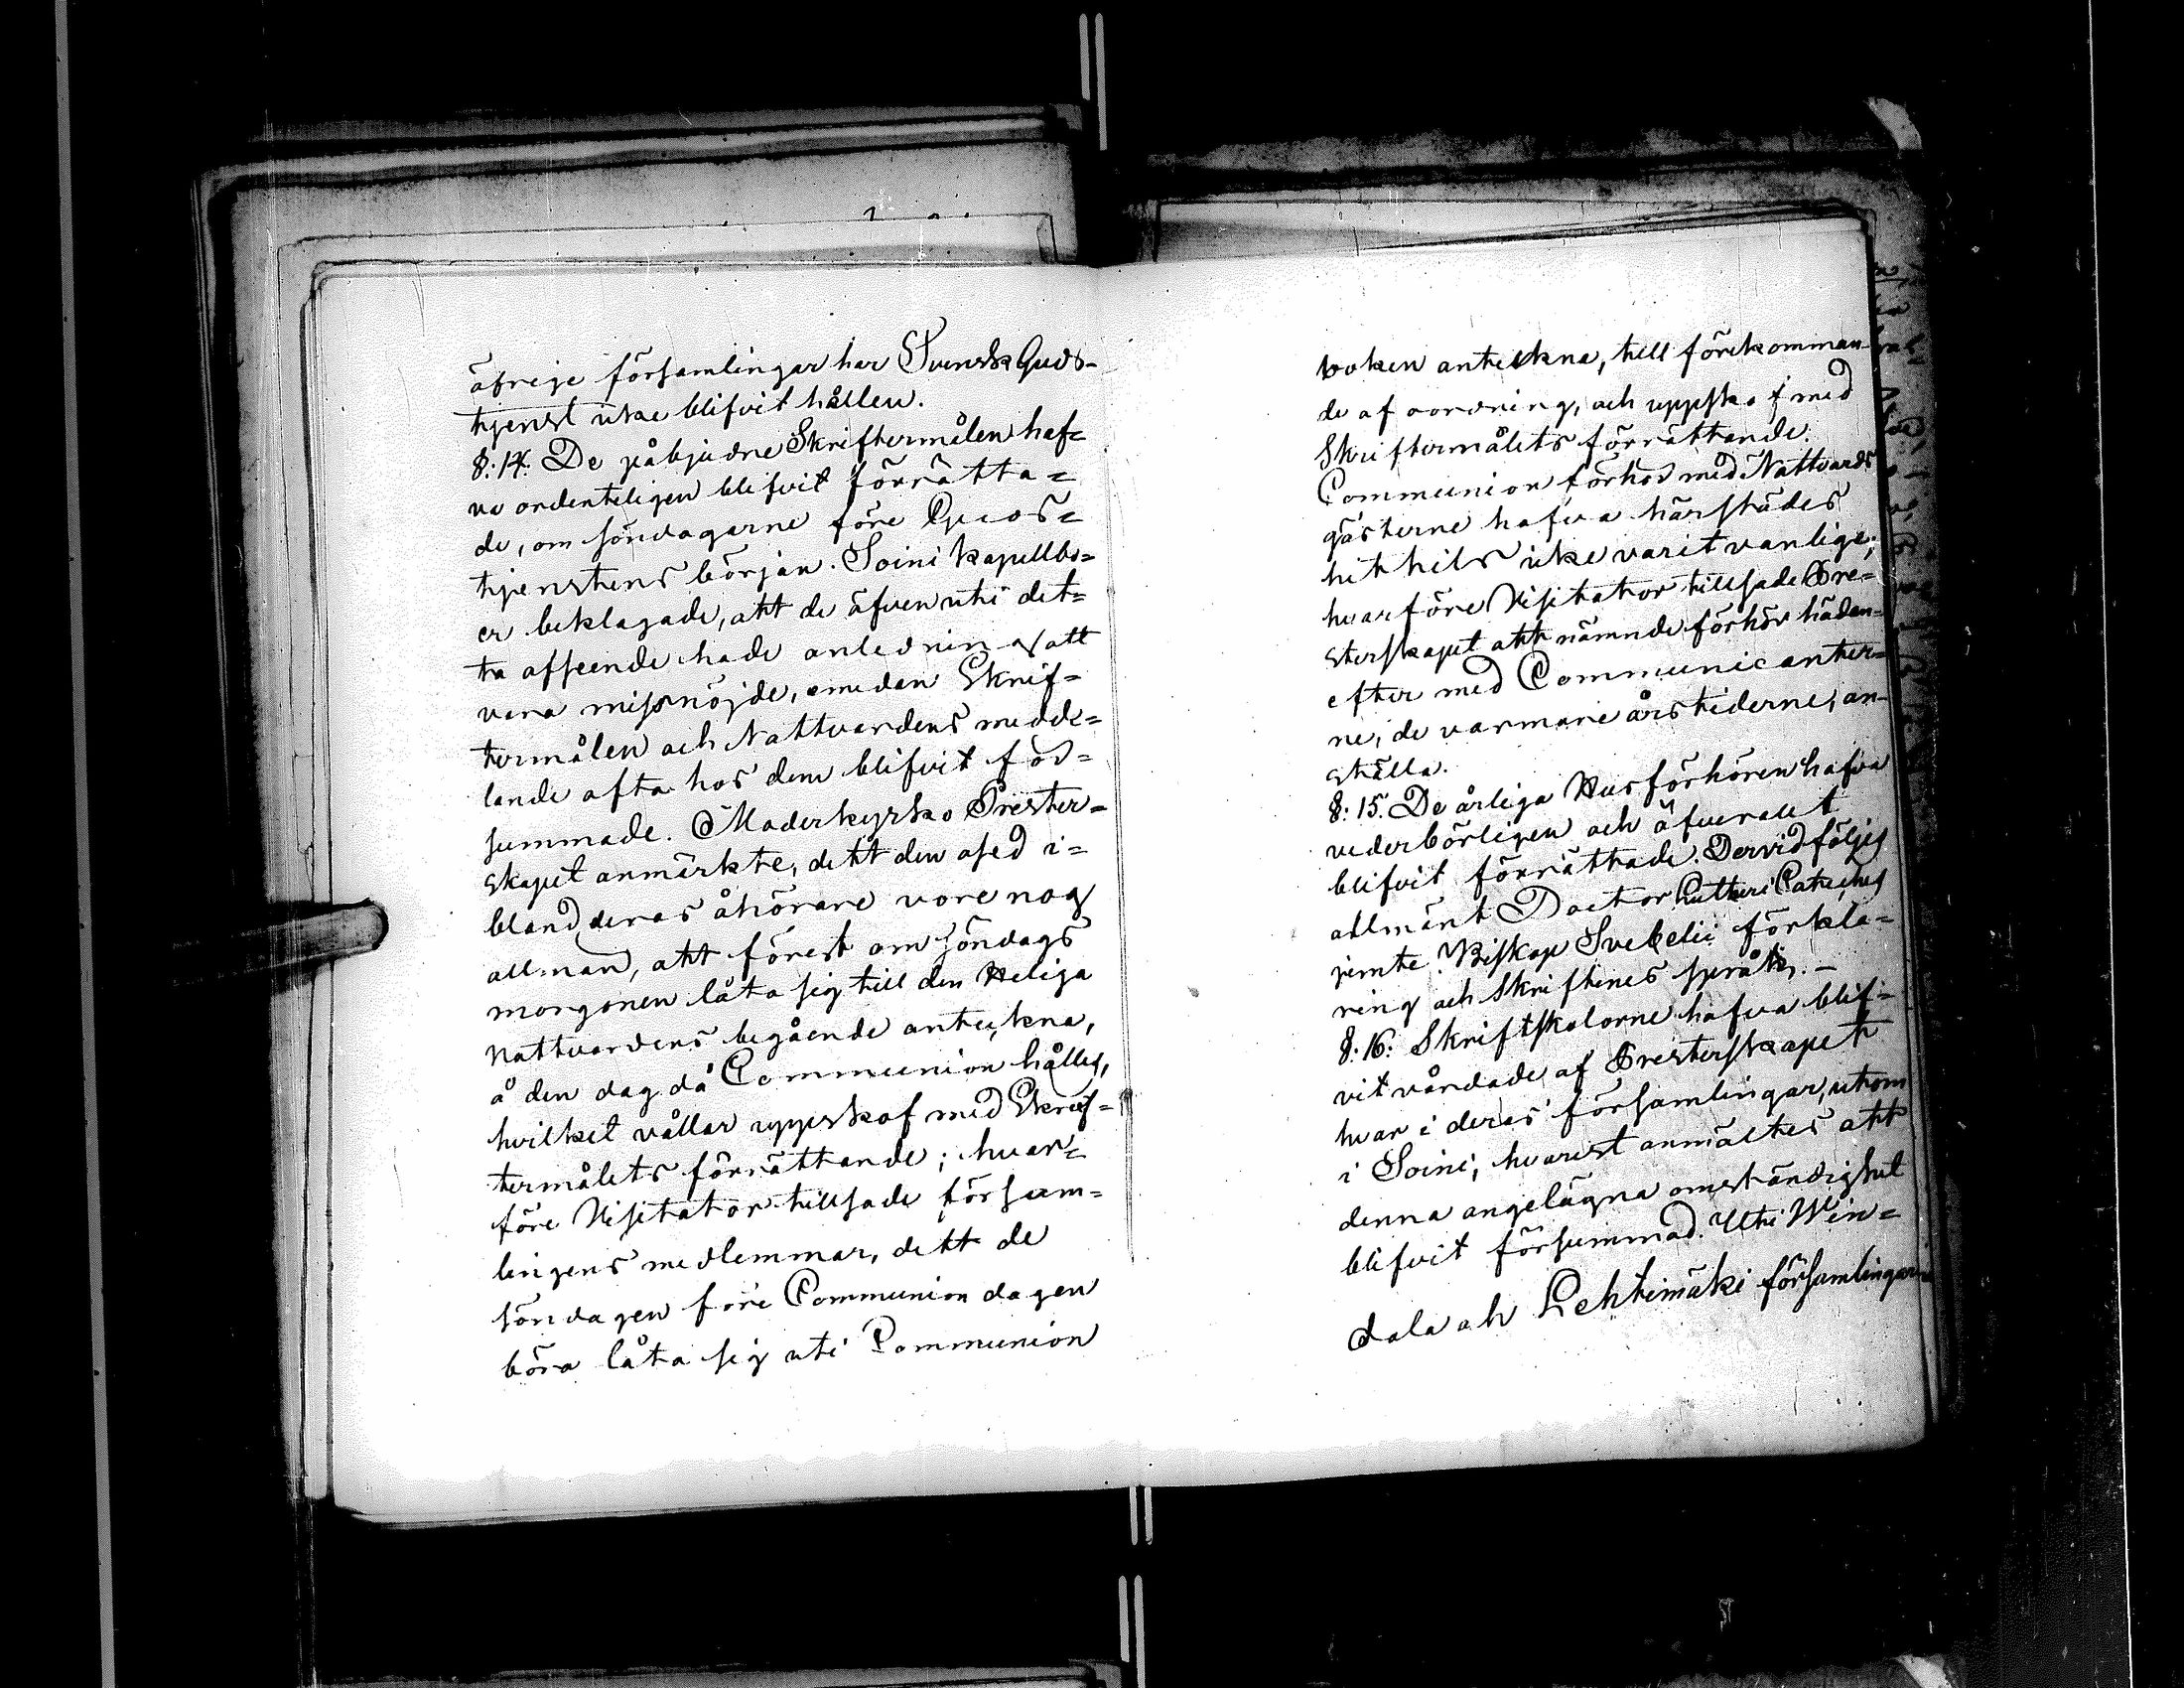 öfrige församlingar har Svensk Guds-
tjenst icke blifvit hållen.
§: 14. De påbjudne Skriftermålen haf=
va ordenteligen blifvit förrätta=
de, om söndagarne före Guds=
tjenstens början. Soini kapellbo=
er beklagade, att de äfven uti det=
ta afseende hade anledning att
vara missnöjde, emedan Skrif=
termålen och Nattvardens medde=
lande ofta hos dem blifvit för=
summade. Moderkyrko Prester=
skapet anmärkte, dett den osed i=
bland deras åhörare vore nog
allmän, att först om söndags
morgonen låta sig till den Heliga
Nattvardens begående anteckna,
å den dag då Communion hålles,
hvilket vållar uppskof med Skrif=
termålets förrättande; hvar=
före Visitator tillsade försam=
lingens medlemmar, dett de
söndagen före Communion dagen
böra låta sig uti Communion
boken anteckna, till förekomman-
de af oordning, och uppskof med
Skriftermålets förrättande.
Communion förhör med Nattvards
gästerne hafva härstädes
hit tils icke varit vanlige;
hvarföre Visitator tillsade Pre=
sterskapet att nämnde förhör hädan=
efter med Communicanter=
ne, de varmare årstiderne, an-
ställa.
§: 15. De årliga Husförhören hafva
vederbörligen och öfverallt
blifvit förrättade. Dervid följes
allmänt Doctor Lutheri Cateches
jemte Biskop Svebelii förkla=
ring och Skriftenes språk. -
§: 16. Skriftskolorne hafva blif=
vit vårdade af Presterskapet
hvar i deras församlingar, utom
i Soini, hvarest anmältes att
denna angelägna omständighet
blifvit försummad. Uti Win=
dala och Lehtimäki församlingarne